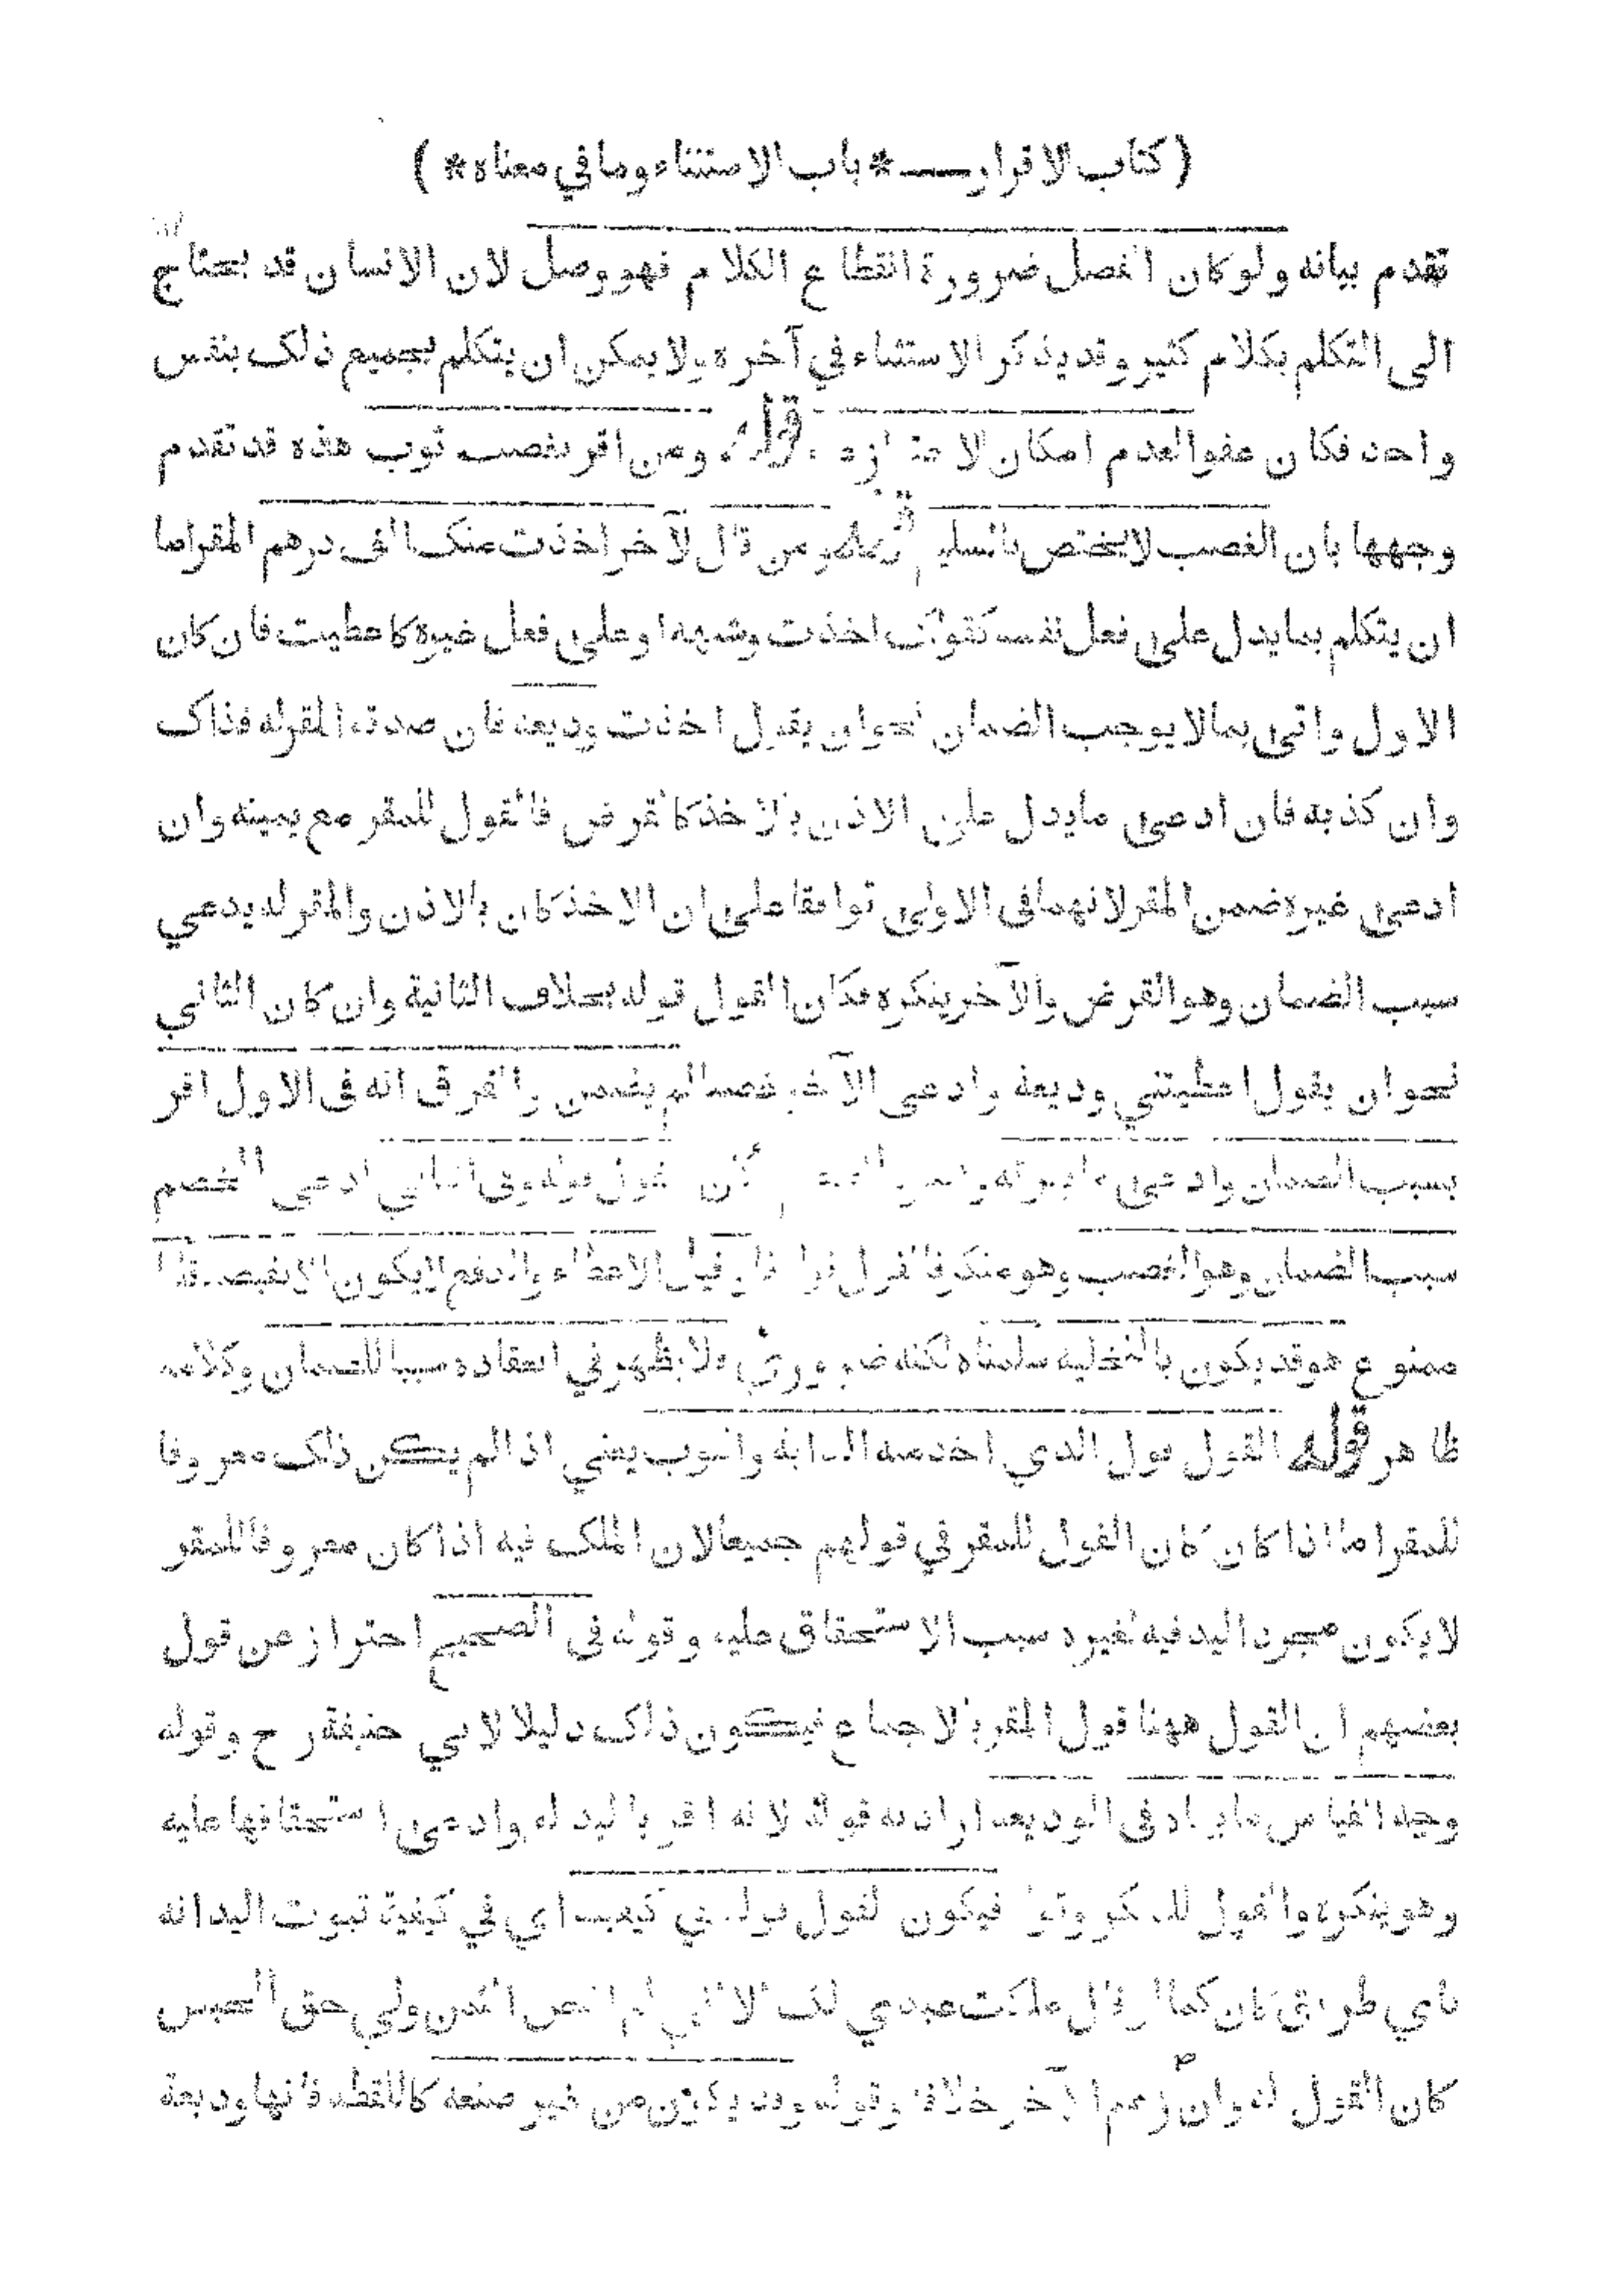 ( كتاب الاقرار ـــ * باب الاستثناء وما في معناه * )
تقدم بيانه ولوكان الفصل ضرورة انقطاع الكلام فهو وصل لان الانسان قد يحتاج
الى التكلم بكلام كثير وقد يذكر الاستثناء في آخره ولا يمكن ان يتكلم بجميع ذلك بنفس
واحد فكان عفوا لعدم امكان الاحترازعنه قوله ومن اقر بغصب ثوب هذه قد تقدم
وجهها بان الغصب لا يختص بالسليم قوله ومن قال لآخر اخذت منك الف درهم المقر اما
ان يتكلم بما يدل على فعل نفسه كقوله اخذت وشبهه او على فعل غيره كاعطيت فان كان
الاول واتى بما لا يوجب الضمان نحو ان يقول اخذت وديعة فان صدقه المقر له فذاك
وان كذبه فان ادعى ما يدل على الاذن بالاخذ كالقرض فالقول للمقر مع يمينه وان
ادعى غيره ضمن المقر لانهما فى الاولى توافقا على ان الاخذ كان بالاذن والمقر له يدعي
سبب الضمان وهو القرض والآخر ينكره فكان القول قوله بخلاف الثانية وان كان الثاني
نحو ان يقول اعطيتني وديعة وادعى الآخر غصبا لم يضمن والفرق انه فى الاول اقر
بسبب الضمان وادعى ما يبرئه القول قوله وفى الثاني ادعى الخصم
سبب الضمان وهو الغصب وهو منكر فالقول قوله فان قيل الاعطاء والدفع لا يكون الا بقبضه قلنا
ممنوع هو قد يكون بالتخلية سلمناه لكنه ضروري فلا يظهر في انعقاده سببا للضمان وكلامه
ظاهر قوله القول قول الذي اخذ منه الدابة والثوب يعني اذا لم يكن ذلك معروفا
للمقر اما اذا كان كان القول للمقر في قولهم جميعا لان الملك فيه اذا كان معروفا للمقر
لا يكون مجرد اليد فيه لغيره سبب الاستحقاق عليه وقوله فى الصحيح احتراز عن قول
بعضهم ان القول ههنا قول المقر بالاجماع فيكون ذلك دليلا لابي حنيفة رح وقوله
وجه القياس ما بيناه فى الوديعة اراد به قوله لانه اقر باليد له وادعى استحقاقها عليه
وهو ينكره والقول للمنكر وقوله فيكون القول قوله في كيفيته اي في كيفية ثبوت اليد انه
باي طريق كان كما لو قال ملكت عبدي لك الا اني لم اقبض الثمن ولي حق الحبس
كان القول له وان زعم الآخر خلافه وقوله وقد يكون من غير صنعه كاللقطة فانها وديعة